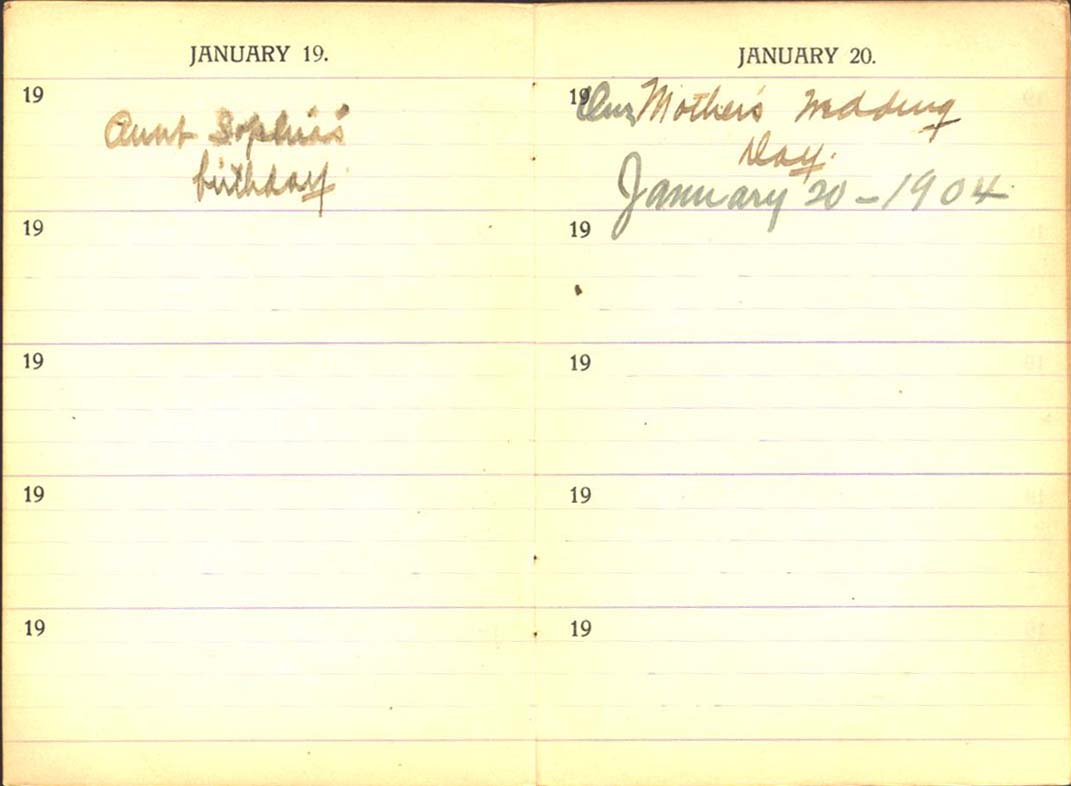 JANUARY 19.
19
Aunt Sophia's
birthday.
19
19
19
19
JANUARY 20.
19
Our Mother's Wedding
Day.
January 20 - 1904.
19
19
19
19